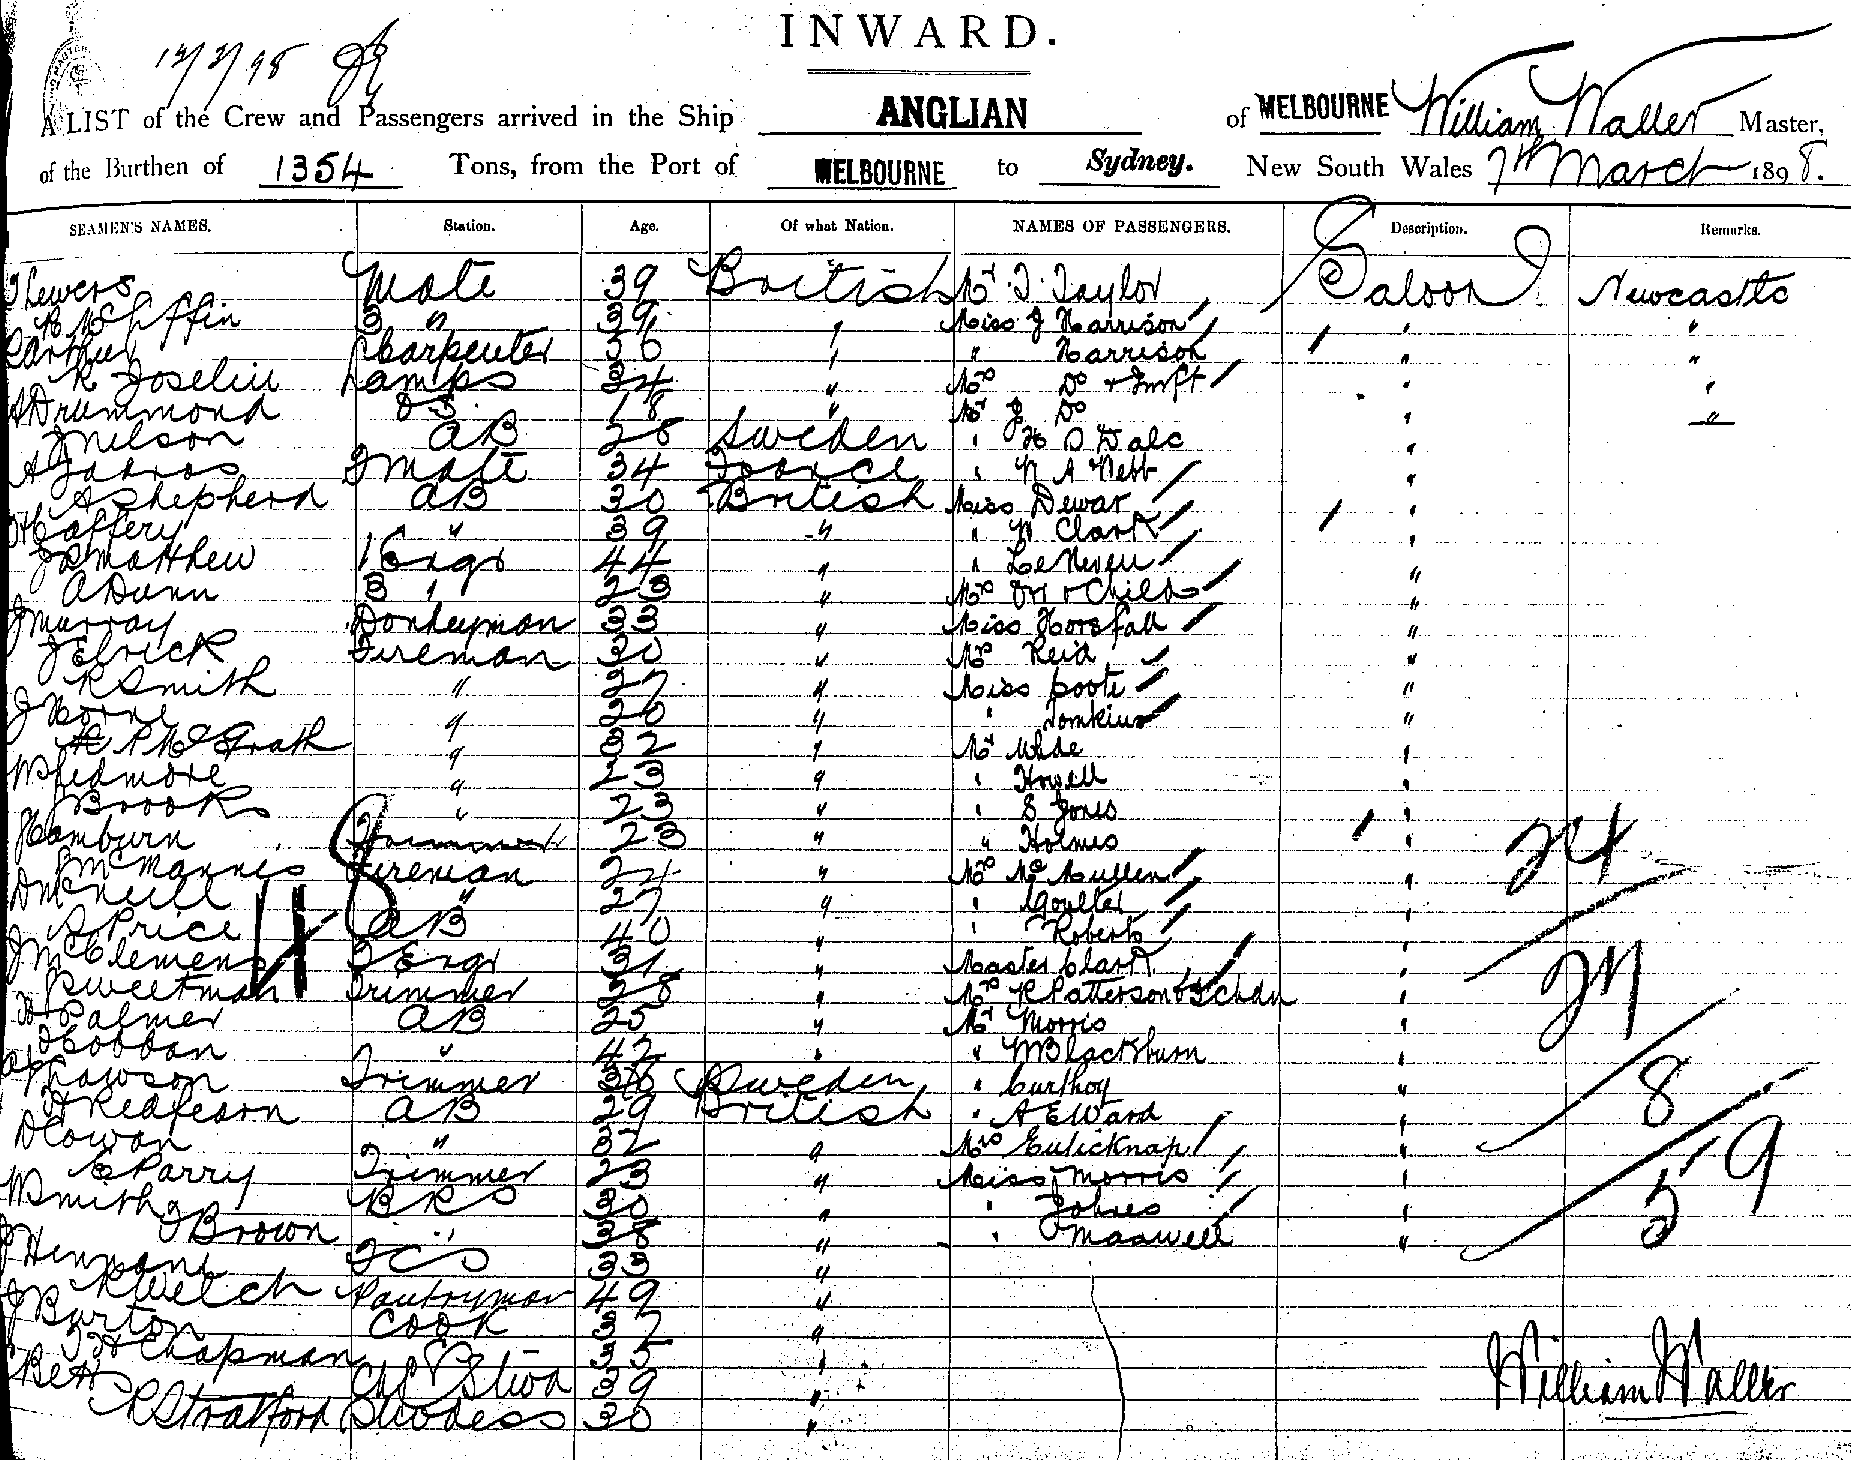 INWARD.
12/3/98
A LIST of the Crew and Passengers arrived in the Ship ANGLIAN of MELBOURNE William Waller Master,
of the Burthen of 1354 Tons, from the Port of MELBOURNE to Sydney. New South Wales 7th March 1898.
SEAMEN'S NAMES. Station. Age. Of what Nation. NAMES OF PASSENGERS. Description. Remarks.
Mate 39 British Mr T. Taylor Saloon Newcastle
3 " Miss J Harrison " "
Carpenter 36 " " Harrison " "
R Joselin Lamps 34 " Mrs Do " "
A Drummond OS 18 " Mr J. Do " "
J Nelson AB 28 Sweden " H O Dale "
2 Mate 34 France " N A Webb "
A Shepherd AB 30 British Miss Dewar "
H Caffery " 39 " " N Clark "
Matthew 1 Engr 44 " " "
A Dunn 3 " 23 " Mrs Child "
J Murray Donkeyman 33 " Miss Horsfall "
J Elrick Fireman 30 " Mrs Reid "
R Smith " 27 " Miss Foote "
J Horne " 20 " " Tomkins "
McGrath " 32 " Mr Uhde "
" 23 " " Howell "
Brooks " 23 " " S Jones "
Hamburn Trimmer 23 " " Holmes " 24
McMannes Fireman 24 " Mrs McMullen "
D McNeill " 27 " " Goulter "
Price AB 40 " " Roberts "
J McClemens 2 Engr 31 " Master Clark " 27
Sweetman Trimmer 28 " Mrs R Patterson "
Palmer AB 25 " Mr Morris "
" 42 " " W Blackburn "
Trimmer Sweden " " 8
H Redfearn AB 29 British " A E Ward "
D Cowan " 32 " Mrs "
E Parry Trimmer 23 " Miss Morris " 59
W Smith BRS 30 " " "
J Brown " 38 " " Maxwell "
FCS 33 "
R Welch Pantryman 49 "
J Burton Cook 37 "
Chapman 35 "
Betts 39 "
R Stratford Stewdess 30 "
William Waller